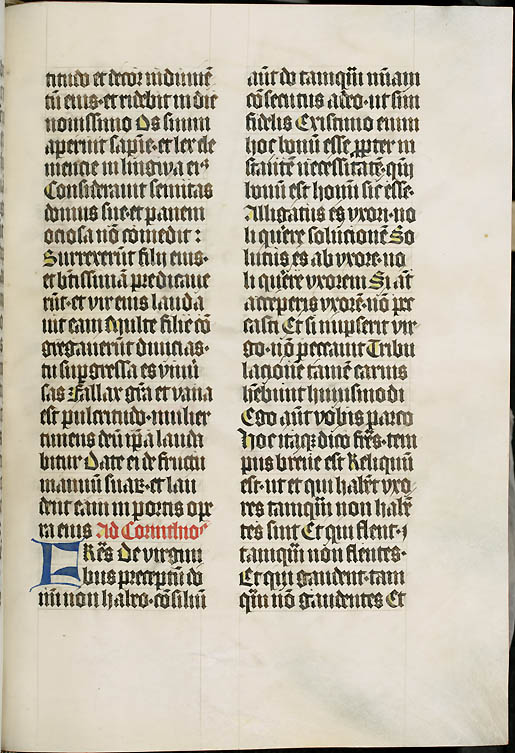 titudo et decor indumē
tū eius·et ridebit in die
nouissimo Os suum
aperuit sapīe·et lex cle
mencie in lingwa ei⁹
Considerauit semitas
domus sue·et panem
ociosa nō comedit:
Surrexerūt filij eius·
et btīssimā predicaue
rūt·et vir eius lauda
uit eam Multe filie cō
gregauerūt diuicias·
tu supgressa es vniu
sas Fallax grā et vana
est pulcritudo·mulier
timens deū ipā lauda
bitur Date ei de fructu
manuū suaꝝ·et lau
dent eam in portis ope
ra eius Ad Corintheo⁹
FRēs De virgini
bus preceptū do
mī non habeo·cōsiliū
aūt do tamqꝫ mīam
cōsecutus a deo·ut sim
fidelis Existimo enim
hoc bonū esse ꝓpter in
stantē necessitatē·qm̄
bonū est homī sic esse·
Alligatus es vxori·no
li querere solucionē So
lutus es ab vxore·no
li querere vxorem Si aūt
acceperis vxorē·nō pec
casti Et si nupserit vir
go·nō peccauit Tribu
lacionē tamē carnis
hebunt huiusmodi
Ego aūt vobis parco
Hoc itaqꝫ dico frēs·tem
pus breue est Reliquū
est·ut et qui habēt vxo
res tamqꝫ non habē
tes sint Et qui flent·
tamqꝫ non flentes·
Et qui gaudent·tam
qꝫ nō gaudentes Et